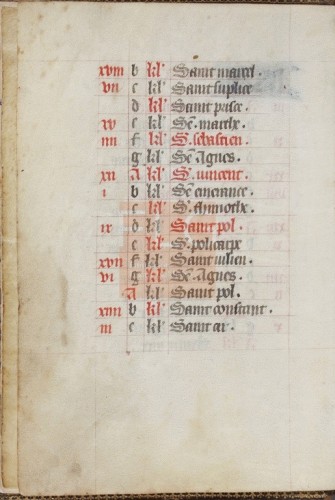 xviii b kl' Saint marcel.
vii c kl' Saint suplice
d kl' Saint prisce.
xv e kl' Sē. marthe.
iiii f kl' S. sebastien.
g kl' Sē Agnes.
xii A kl' S. vincent.
i b kl' Sē emerance.
c kl' S. thymothe.
ix d kl' Saint pol.
e kl' S. policarpe
xvii f kl' Saint iulien.
vi g kl' Sē. Agnes.
A kl' Saint pol.
xiiii b kl' Saint constant.
iii c kl' Saint